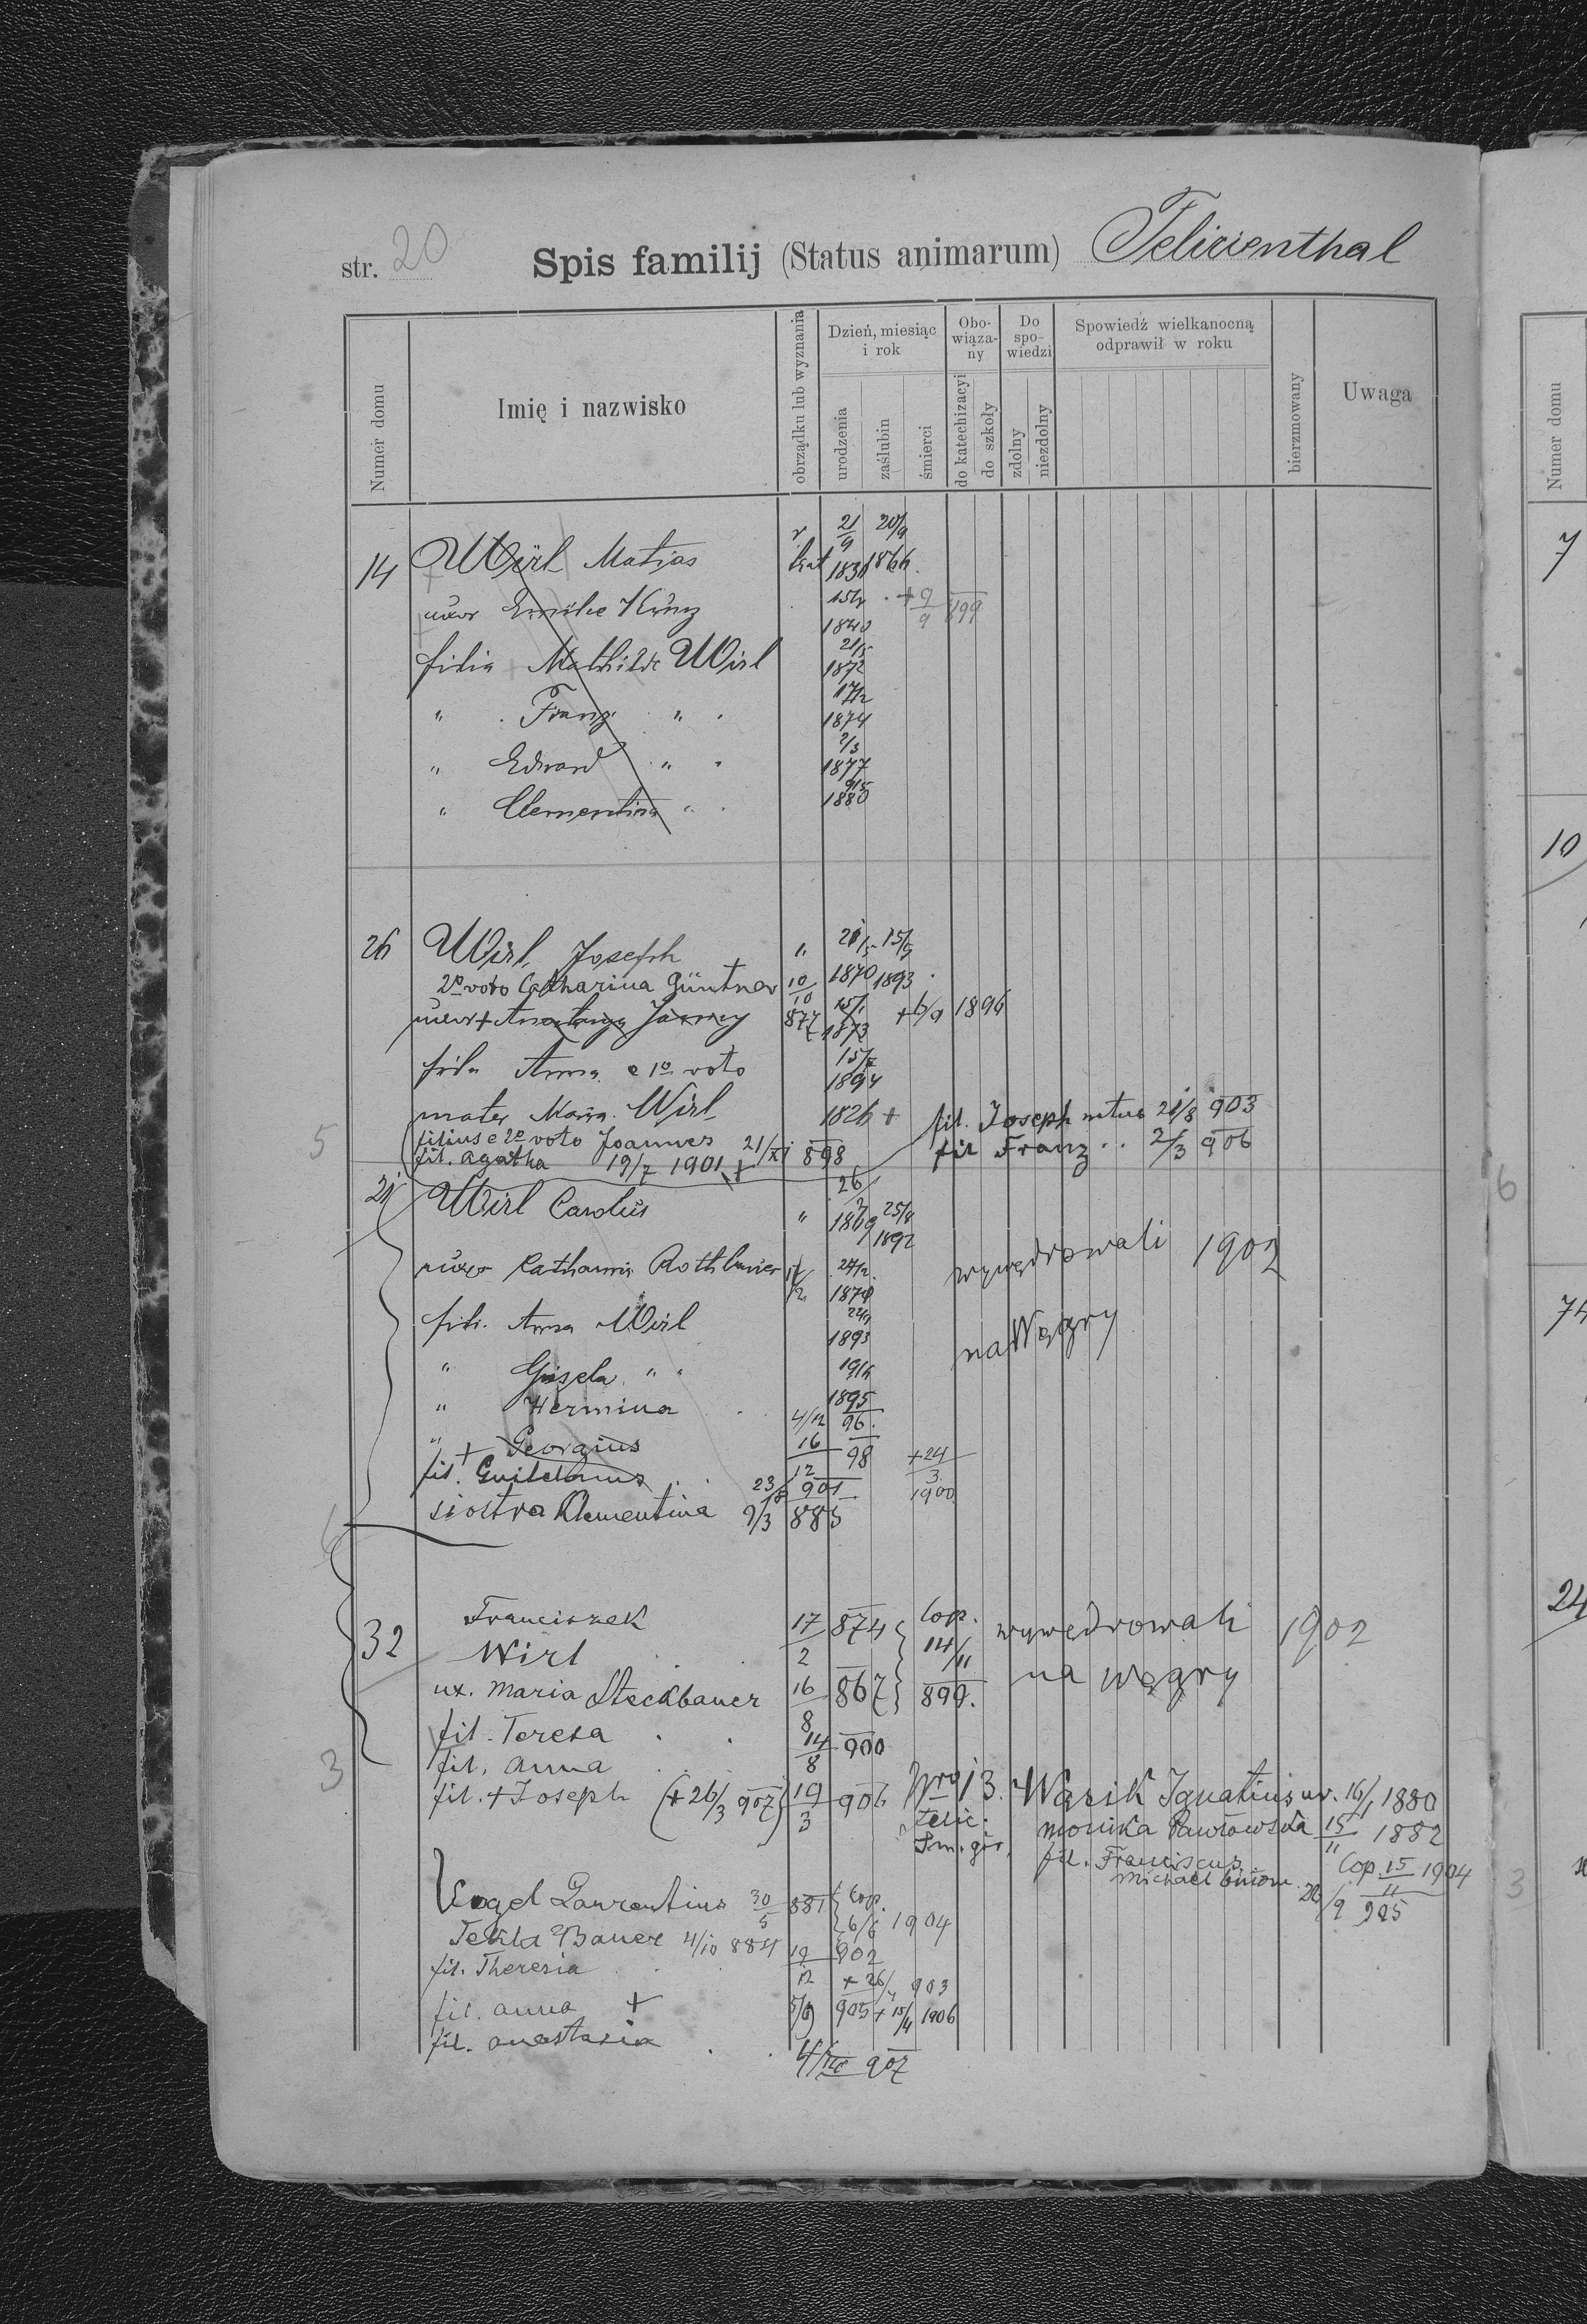 str. 20 Spis familij (Status animarum) Felicienthal
Numer domu
Imię i nazwisko
obrządku lub wyznania
Dzień, miesiąc i rok
urodzenia
zaślubin
śmierci
Obo-wiąza-ny
do katechizacyi
do szkoły
Do spo-wiedzi
zdolny
niezdolny
Spowiedź wielkanocną odprawił w roku
bierzmowany
Uwaga
14 Wirl Matias r. kat 21/9 1831 20/9 1866.
uxor Emilie Künz 1840 + 9/9 899
filia Mathilde Wirl 21/5 1872
" Franz " 17/12 1874
" Edward " 2/3 1877
" Clementina " 9/5 1880
26 Wirl Joseph " 1870 15/5 1893
2º voto Catharina Güntner 10/10 877
uxor + 15/1 1873 + 6/9 1896
filia Anna e 1º voto 1894
mater Maria Wirl 1826 +
fil. Joseph natus 21/8 903
5
filius e 2º voto Joannes 21/XI 898
fil Franz .. 2/3 906
fil. Agatha 19/7 1901 +
21 Wirl Carolus " 26/ 1869 25/ 1892
uxor Catharina Rothbauer 1870
wywędrowali 1902
fili. Anna Wirl 1893
na Węgry
" Gisela " 1895
" Hermina 4/12 96.
" + Georgius 16/12 98 + 24/3 1900
fil. Guilelmus 23/ 901
siostra Klementina 9/3 885
32 Franciszek Wirl 17/2 874 Cop. 14/11 899.
wywędrowali 1902
na węgry
ux. Maria Steckbauer 16/8 867
fil. Teresa 14/8 900
fil. Anna
3
fil. + Joseph (+ 26/3 907) 19/3 906
Nro 13. Wąsik Ignatius ur. 16/1 1880
Felic.
Monika Pawłowska 15/11 1882
fil. Franciscus
Michael
Cop. 15/11 1904
905
Vogel Laurentius 30/5 881 Cop. 6/6 1904
Tekla Bauer 4/10 884
fil. Theresia 19/12 902 + 26/ 903
fil. Anna + 5/9 905 + 15/4 1906
fil. Anastasia 907
Numer domu
7
10
74
24
6
3